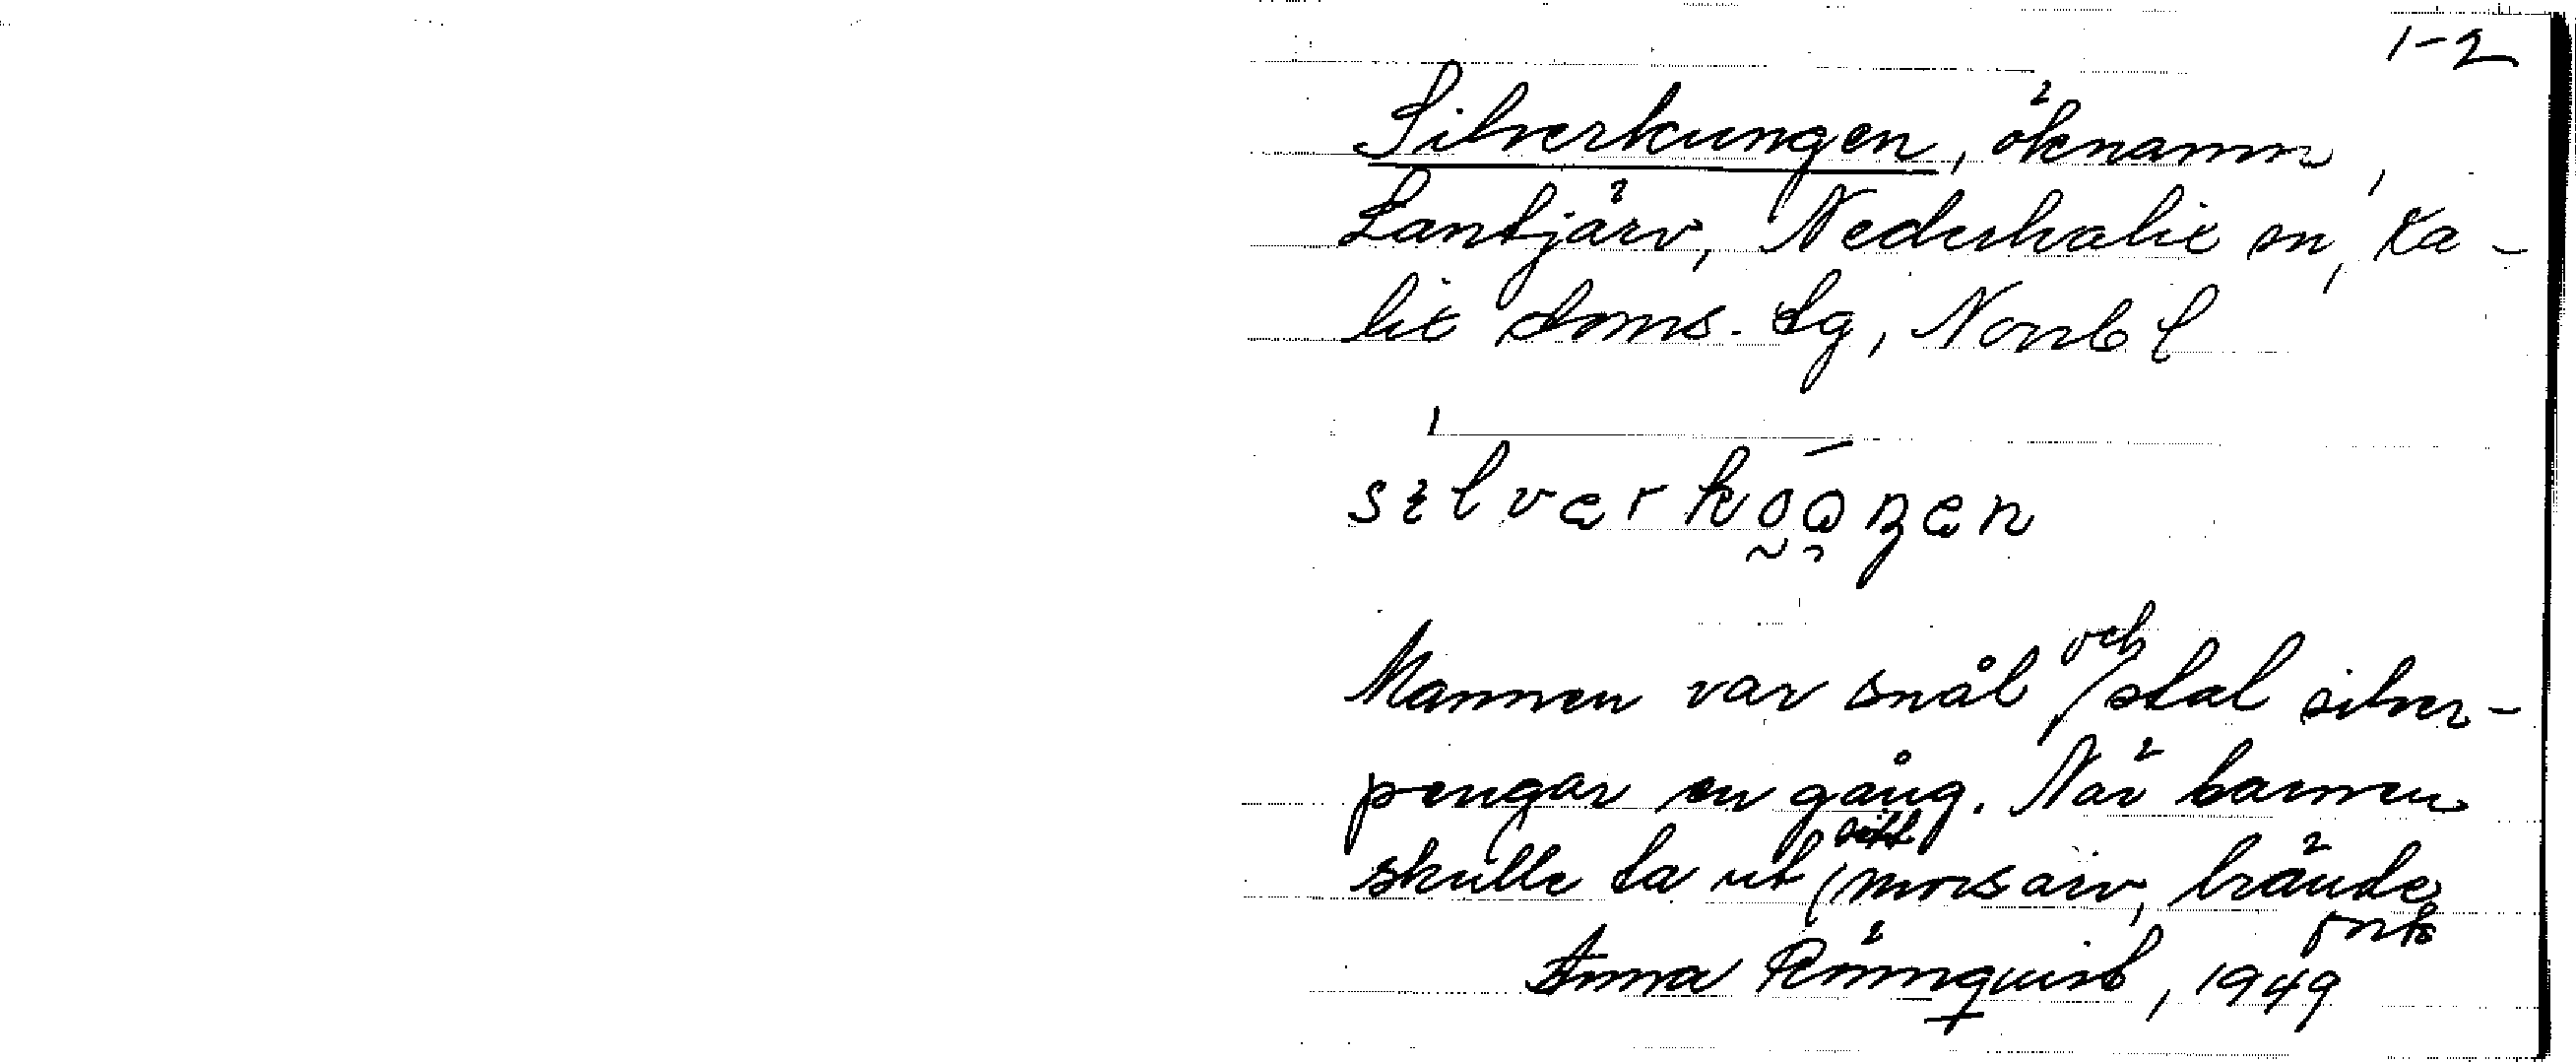 1-2
Silverkungen, öknamn,
Lantjärv, Nederkalix sn, Ka-
lix doms. tg, Norrb l
Mannen var snål och stal silver-
pengar en gång. När barnen
skulle ta ut sitt morsarv, brände
forts
Anna Rönnquist, 1949